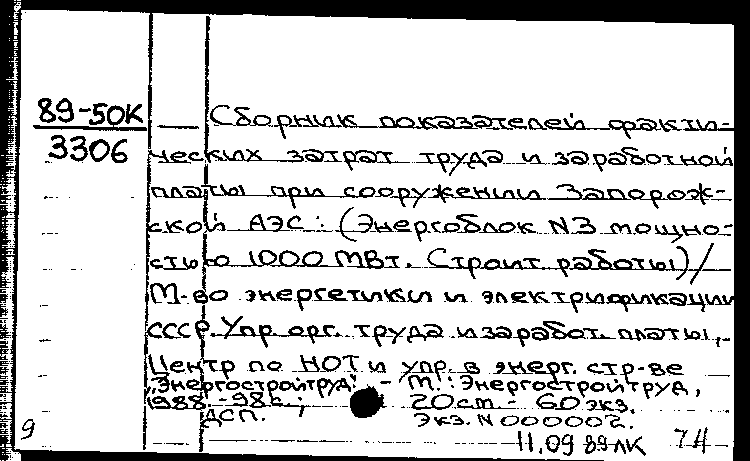 89-50К
3306
Сборник показателей факти-
ческих затрат труда и заработной
платы при сооружении Запорож-
ской АЭС: (Энергоблок N3 мощно-
стью 1000 МВт. Строит. работы)/
М-во энергетики и электрификации
СССР. Упр. орг. труда и заработ. платы,
Центр по НОТ и упр. в энерг. стр-ве
"Энергостройтруд". - М.: Энергостройтруд,
1988. - 98с.; 20см - 60 экз.
ДСП. Экз. N 000002.
9 11.09 89 ЛК 74